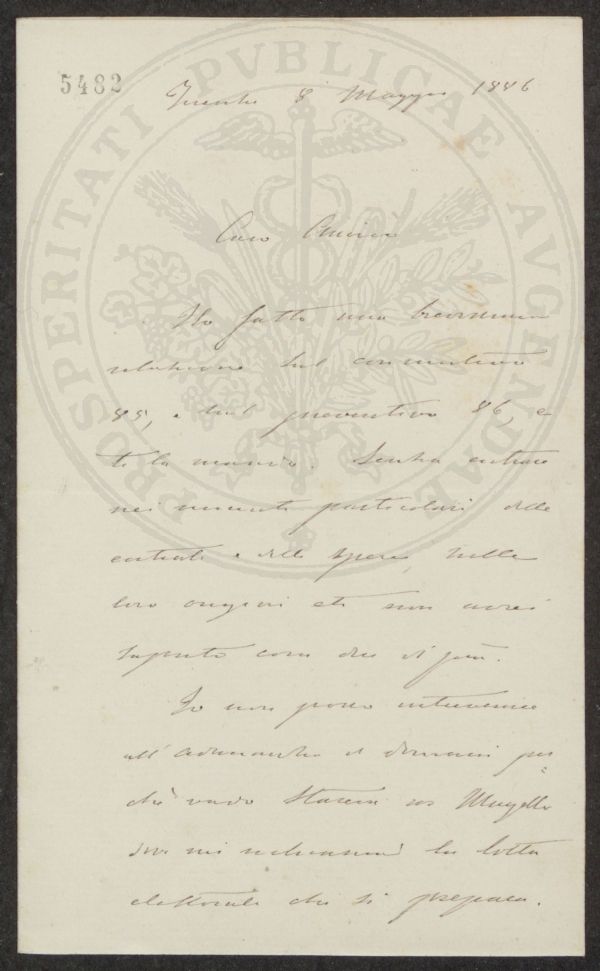 5482
Firenze 8 Maggio 1886
Caro Amico
Ho fatto una brevissima
relazione sul consuntivo
85, e sul preventivo 86, e
te la mando. Senza entrare
nei minuti particolari delle
entrate e delle spese, nelle
loro origini etc non avrei
saputo cosa dire di più.
Io non posso intervenire
all'adunanza di domani per
chè vado stasera in Mugello
dove mi richiama la lotta
elettorale che si prepara.
PROSPERITATI PVBLICAE AVGENDAE